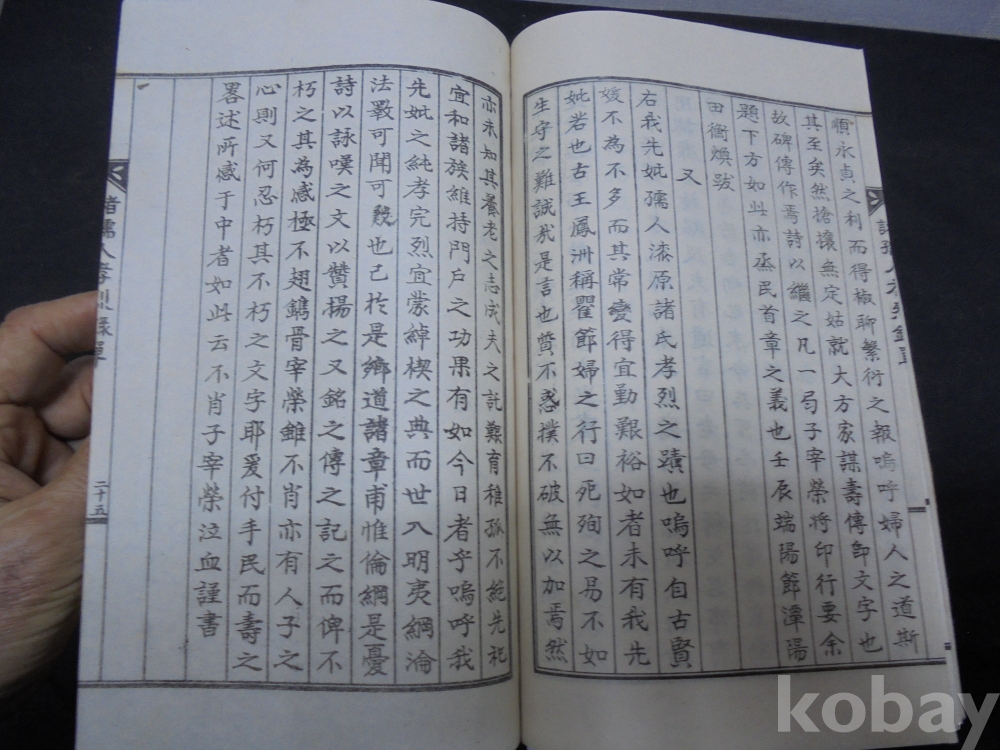 順永貞之利而得椒聊繁衍之報嗚呼婦人之道斯
其至矣然搶攘無定姑就大方家謀壽傳卽文字也
故碑傳作焉詩以繼之凡一局子宰榮將印行要余
題下方如此亦烝民首章之義也壬辰端陽節潭陽
田衡煥跋
又
右我先妣孺人漆原諸氏孝烈之蹟也嗚呼自古賢
媛不為不多而其常變得宜勤艱裕如者未有我先
妣若也古王鳳洲稱瞿節婦之行曰死殉之易不如
生守之難誠哉是言也贊不惑撲不破無以加焉然
亦未知其養老之志成夫之託艱育稚孤不絶先祀
宜和諸族維持門戶之功果有如今日者乎嗚呼我
先妣之純孝完烈宜蒙綽楔之典而世入明夷綱淪
法斁可聞可 也已於是鄉道諸章甫惟倫綱是憂
詩以詠嘆之文以贊揚之又銘之傳之記之而俾不
朽之其為感極不翅鐫骨宰榮錐不肖亦有人子之
心則又何忍朽其不朽之文字耶爰付手民而壽之
畧述所感于中者如此云不肖子宰榮泣血謹書
諸孺人孝烈錄單
二十五
kobay